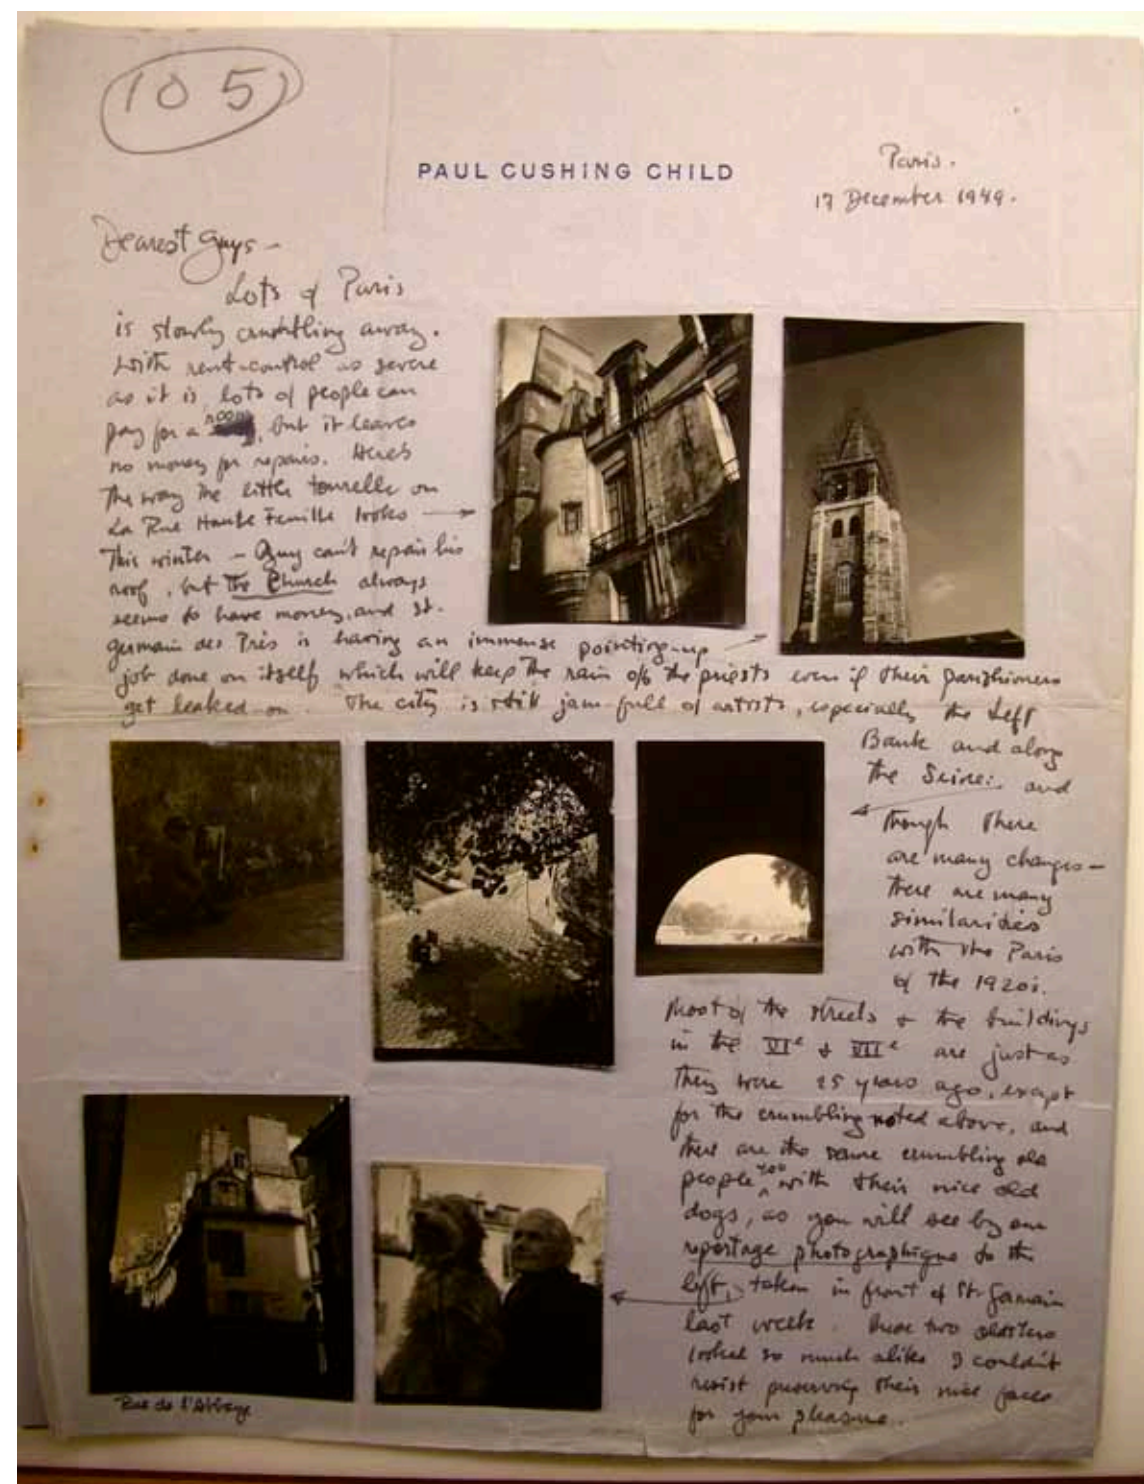 105
PAUL CUSHING CHILD
Paris.
17 December 1949.
Dearest Guys –
Lots of Paris
is slowly crumbling away.
With rent-control as severe
as it is, lots of people can
pay for a room, but it leaves
no money for repairs. Here's
the way the little tourelle on
La Rue Haute Feuille looks
this winter – Guy can't repair his
roof, but The Church always
seems to have money, and St.
Germain des Près is having an immense pointing-up
job done on itself which will keep the rain off the priests even if their parishioners
get leaked on. The city is still jam-full of artists, especially the Left
Bank and along
the Seine: and
though there
are many changes –
there are many
similarities
with the Paris
of the 1920s.
Most of the streets & the buildings
in the VIe & VIIe are just as
they were 25 years ago, except
for the crumbling noted above, and
there are the same crumbling old
people too with their nice old
dogs, as you will see by our
reportage photographique to the
left, taken in front of St Germain
last week. These two oldsters
looked so much alike I couldn't
resist preserving their nice faces
for your pleasure.
Rue de l'Abbaye